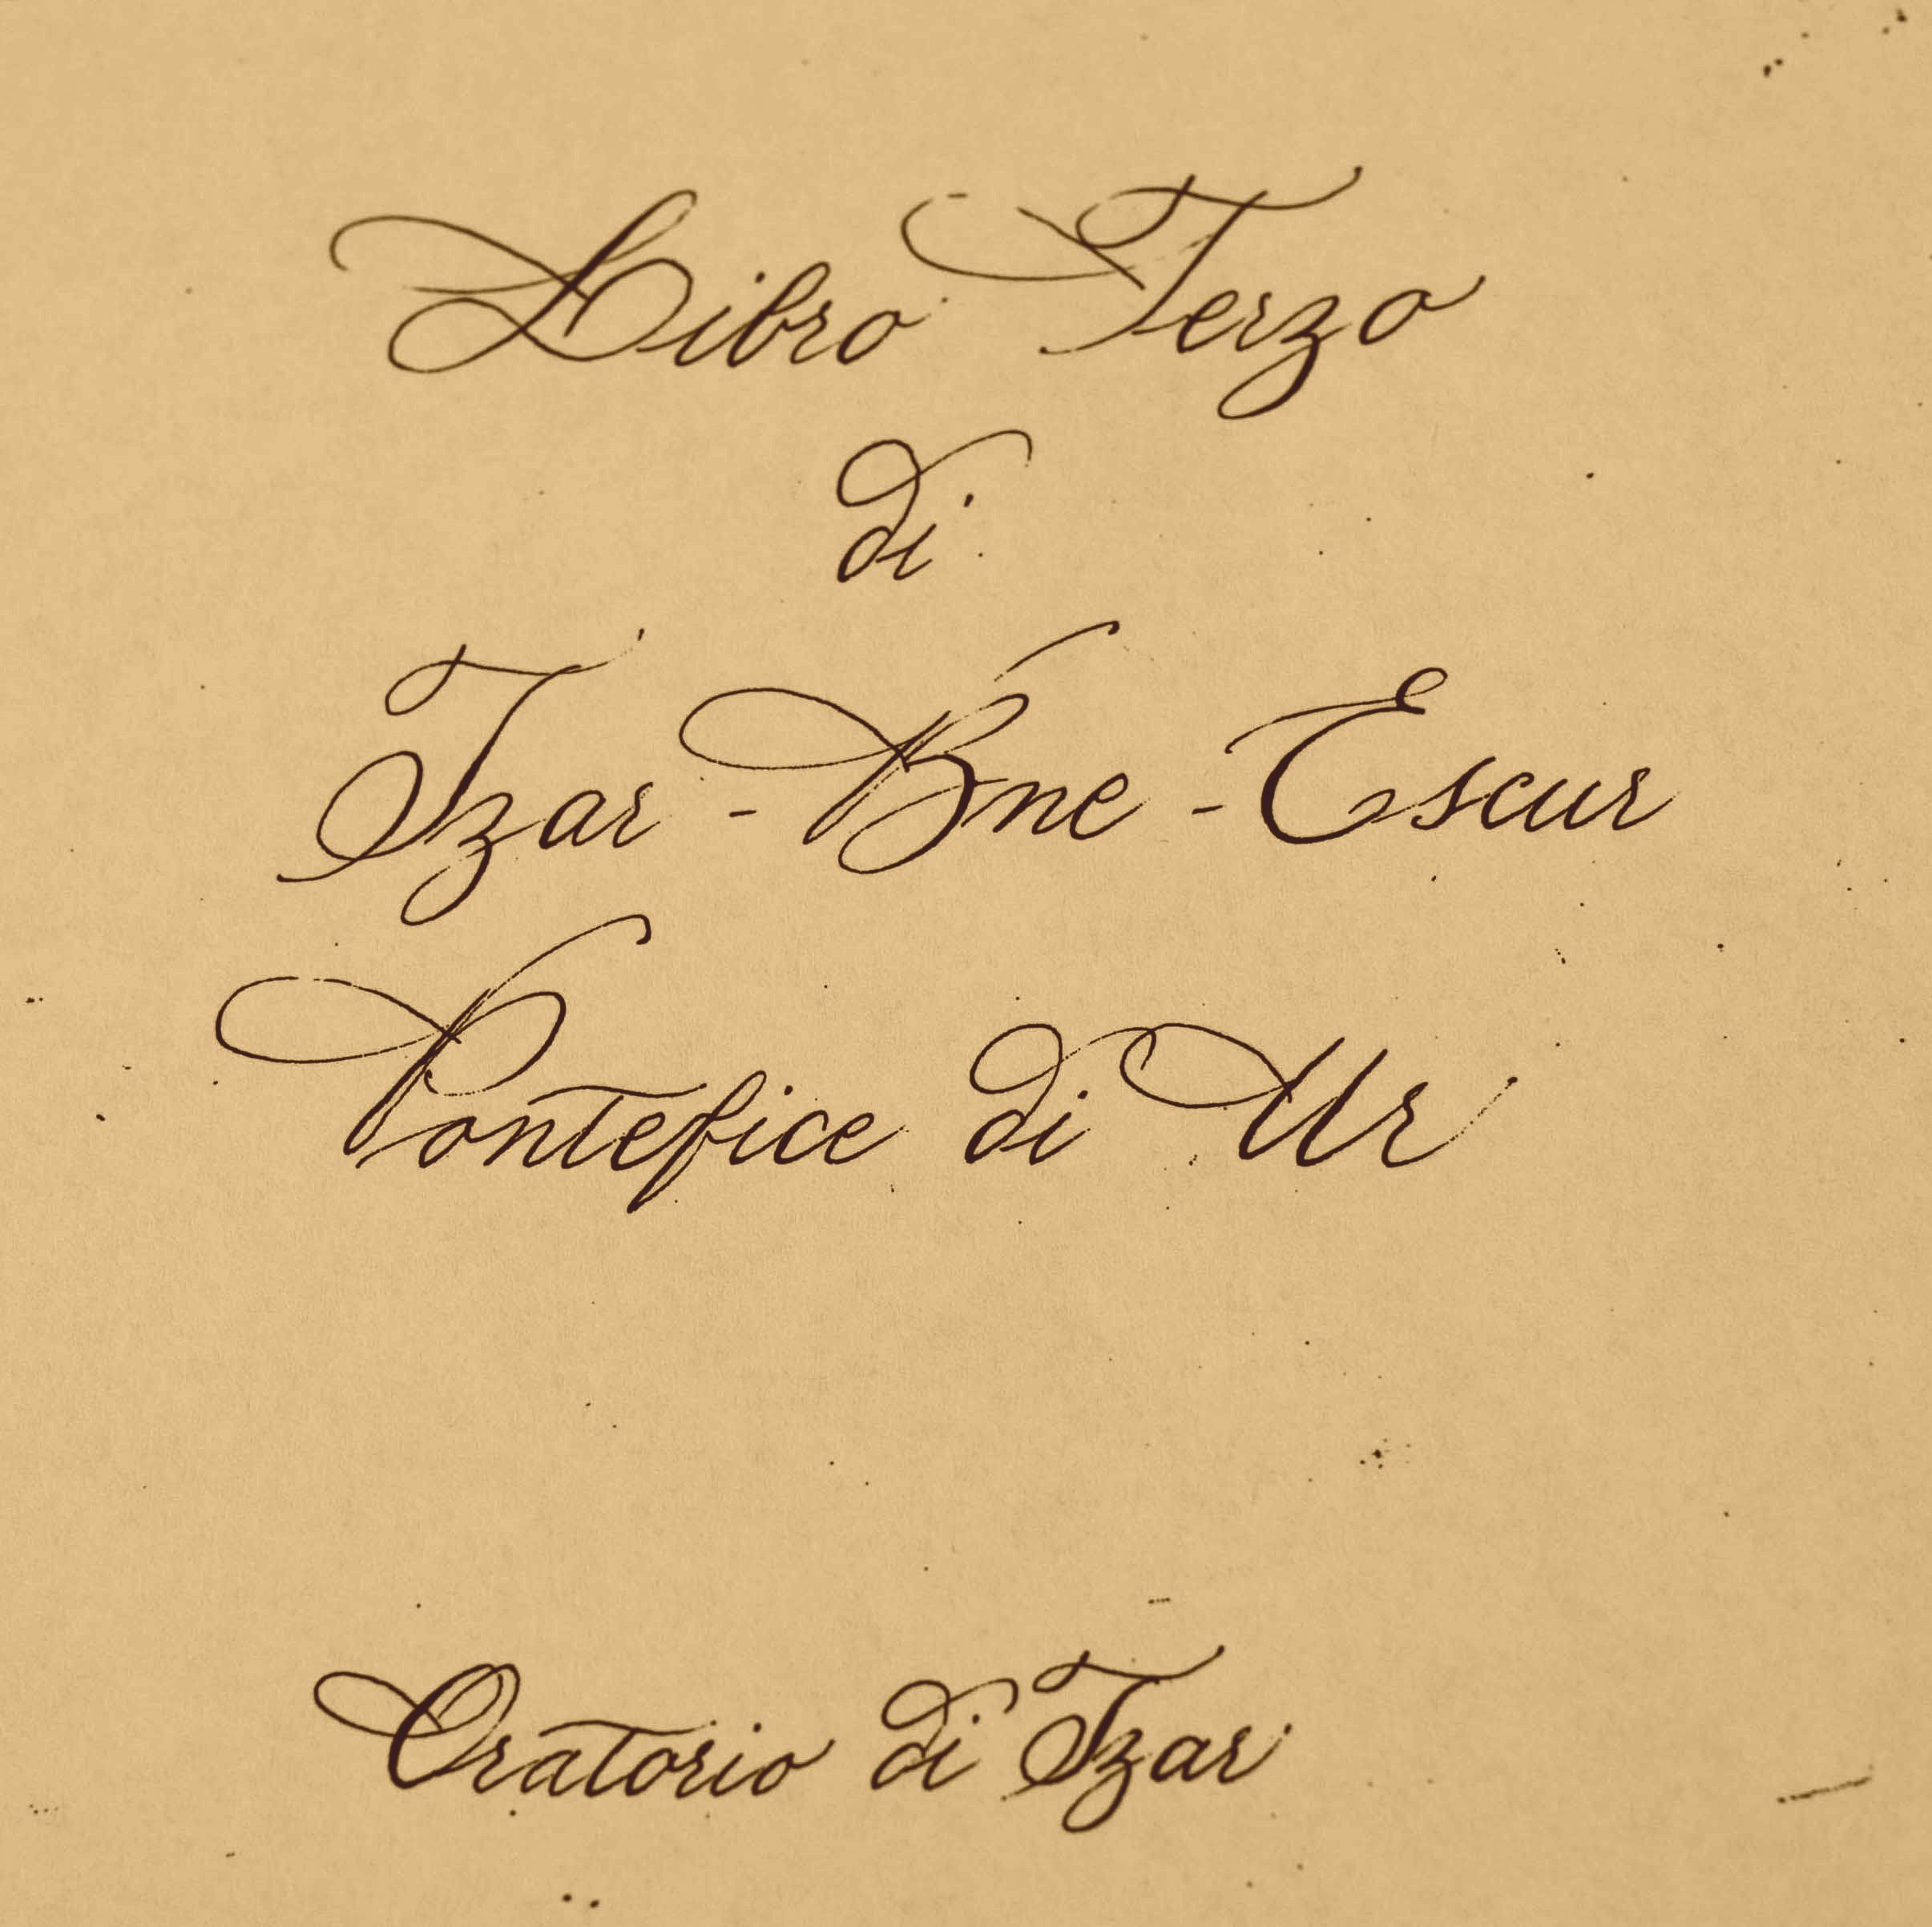 Libro Terzo
di
Tzar - Bne - Escur
Pontefice di Ur
Oratorio di Tzar